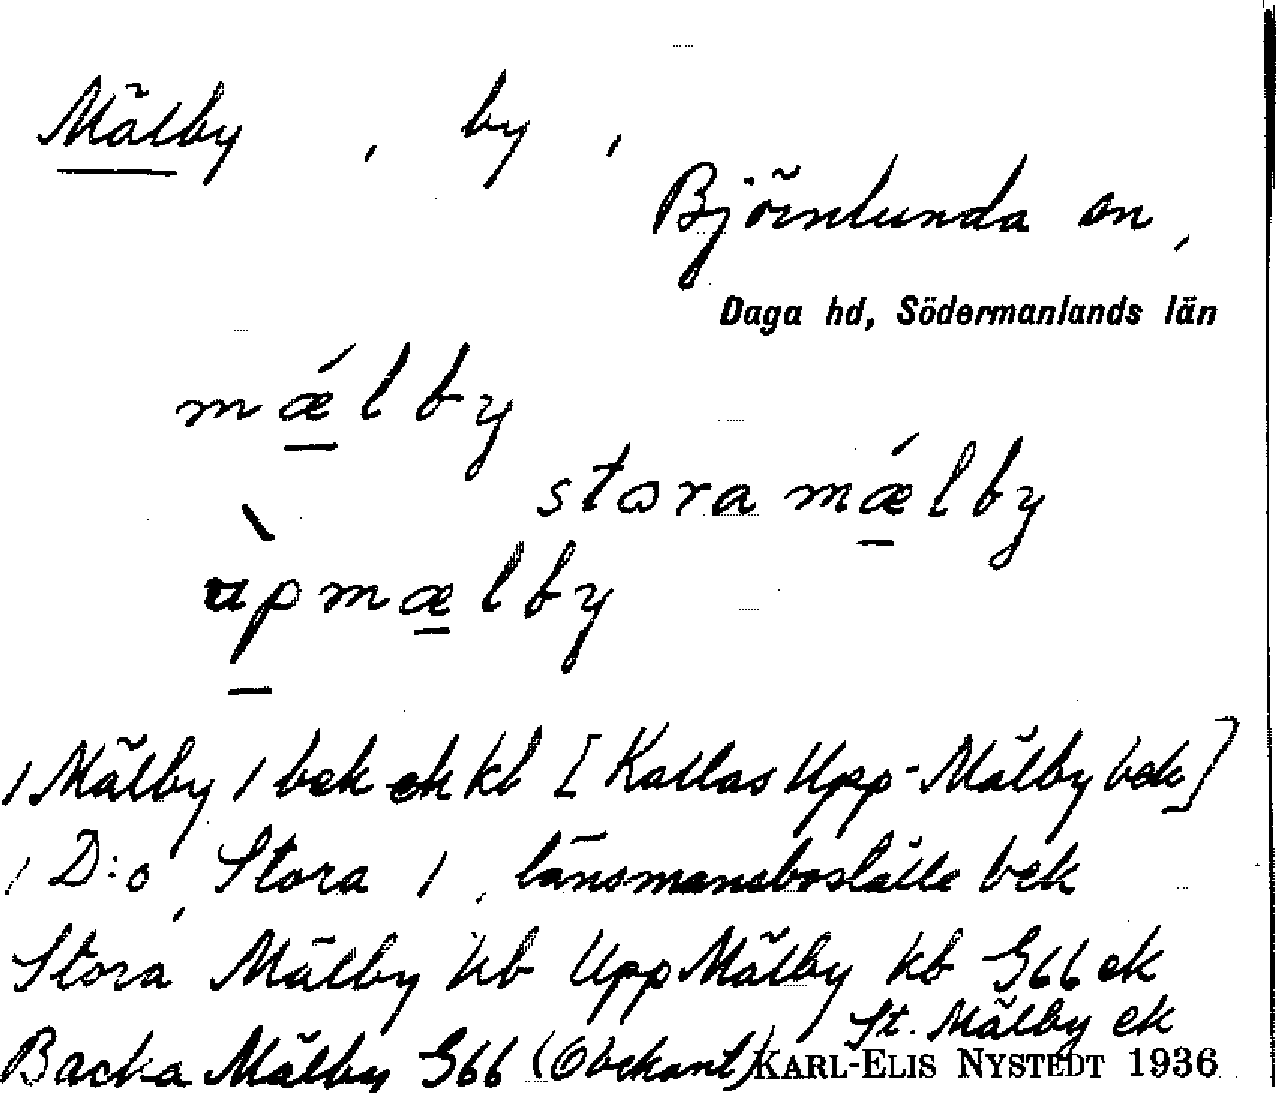 Mälby , by ,
Björnlunda sn ,
Daga hd, Södermanlands län
mǽlby
stora mǽlby
ùpmælby
/ Mälby / bek ek kb [ Kallas Upp-Mälby bek ]
/ D:o, Stora / , länsmansboställe bek
Stora Mälby kb Upp Mälby kb G66 ek
St. Mälby ek
Backa Mälby G66 (Obekant)
KARL-ELIS NYSTEDT 1936